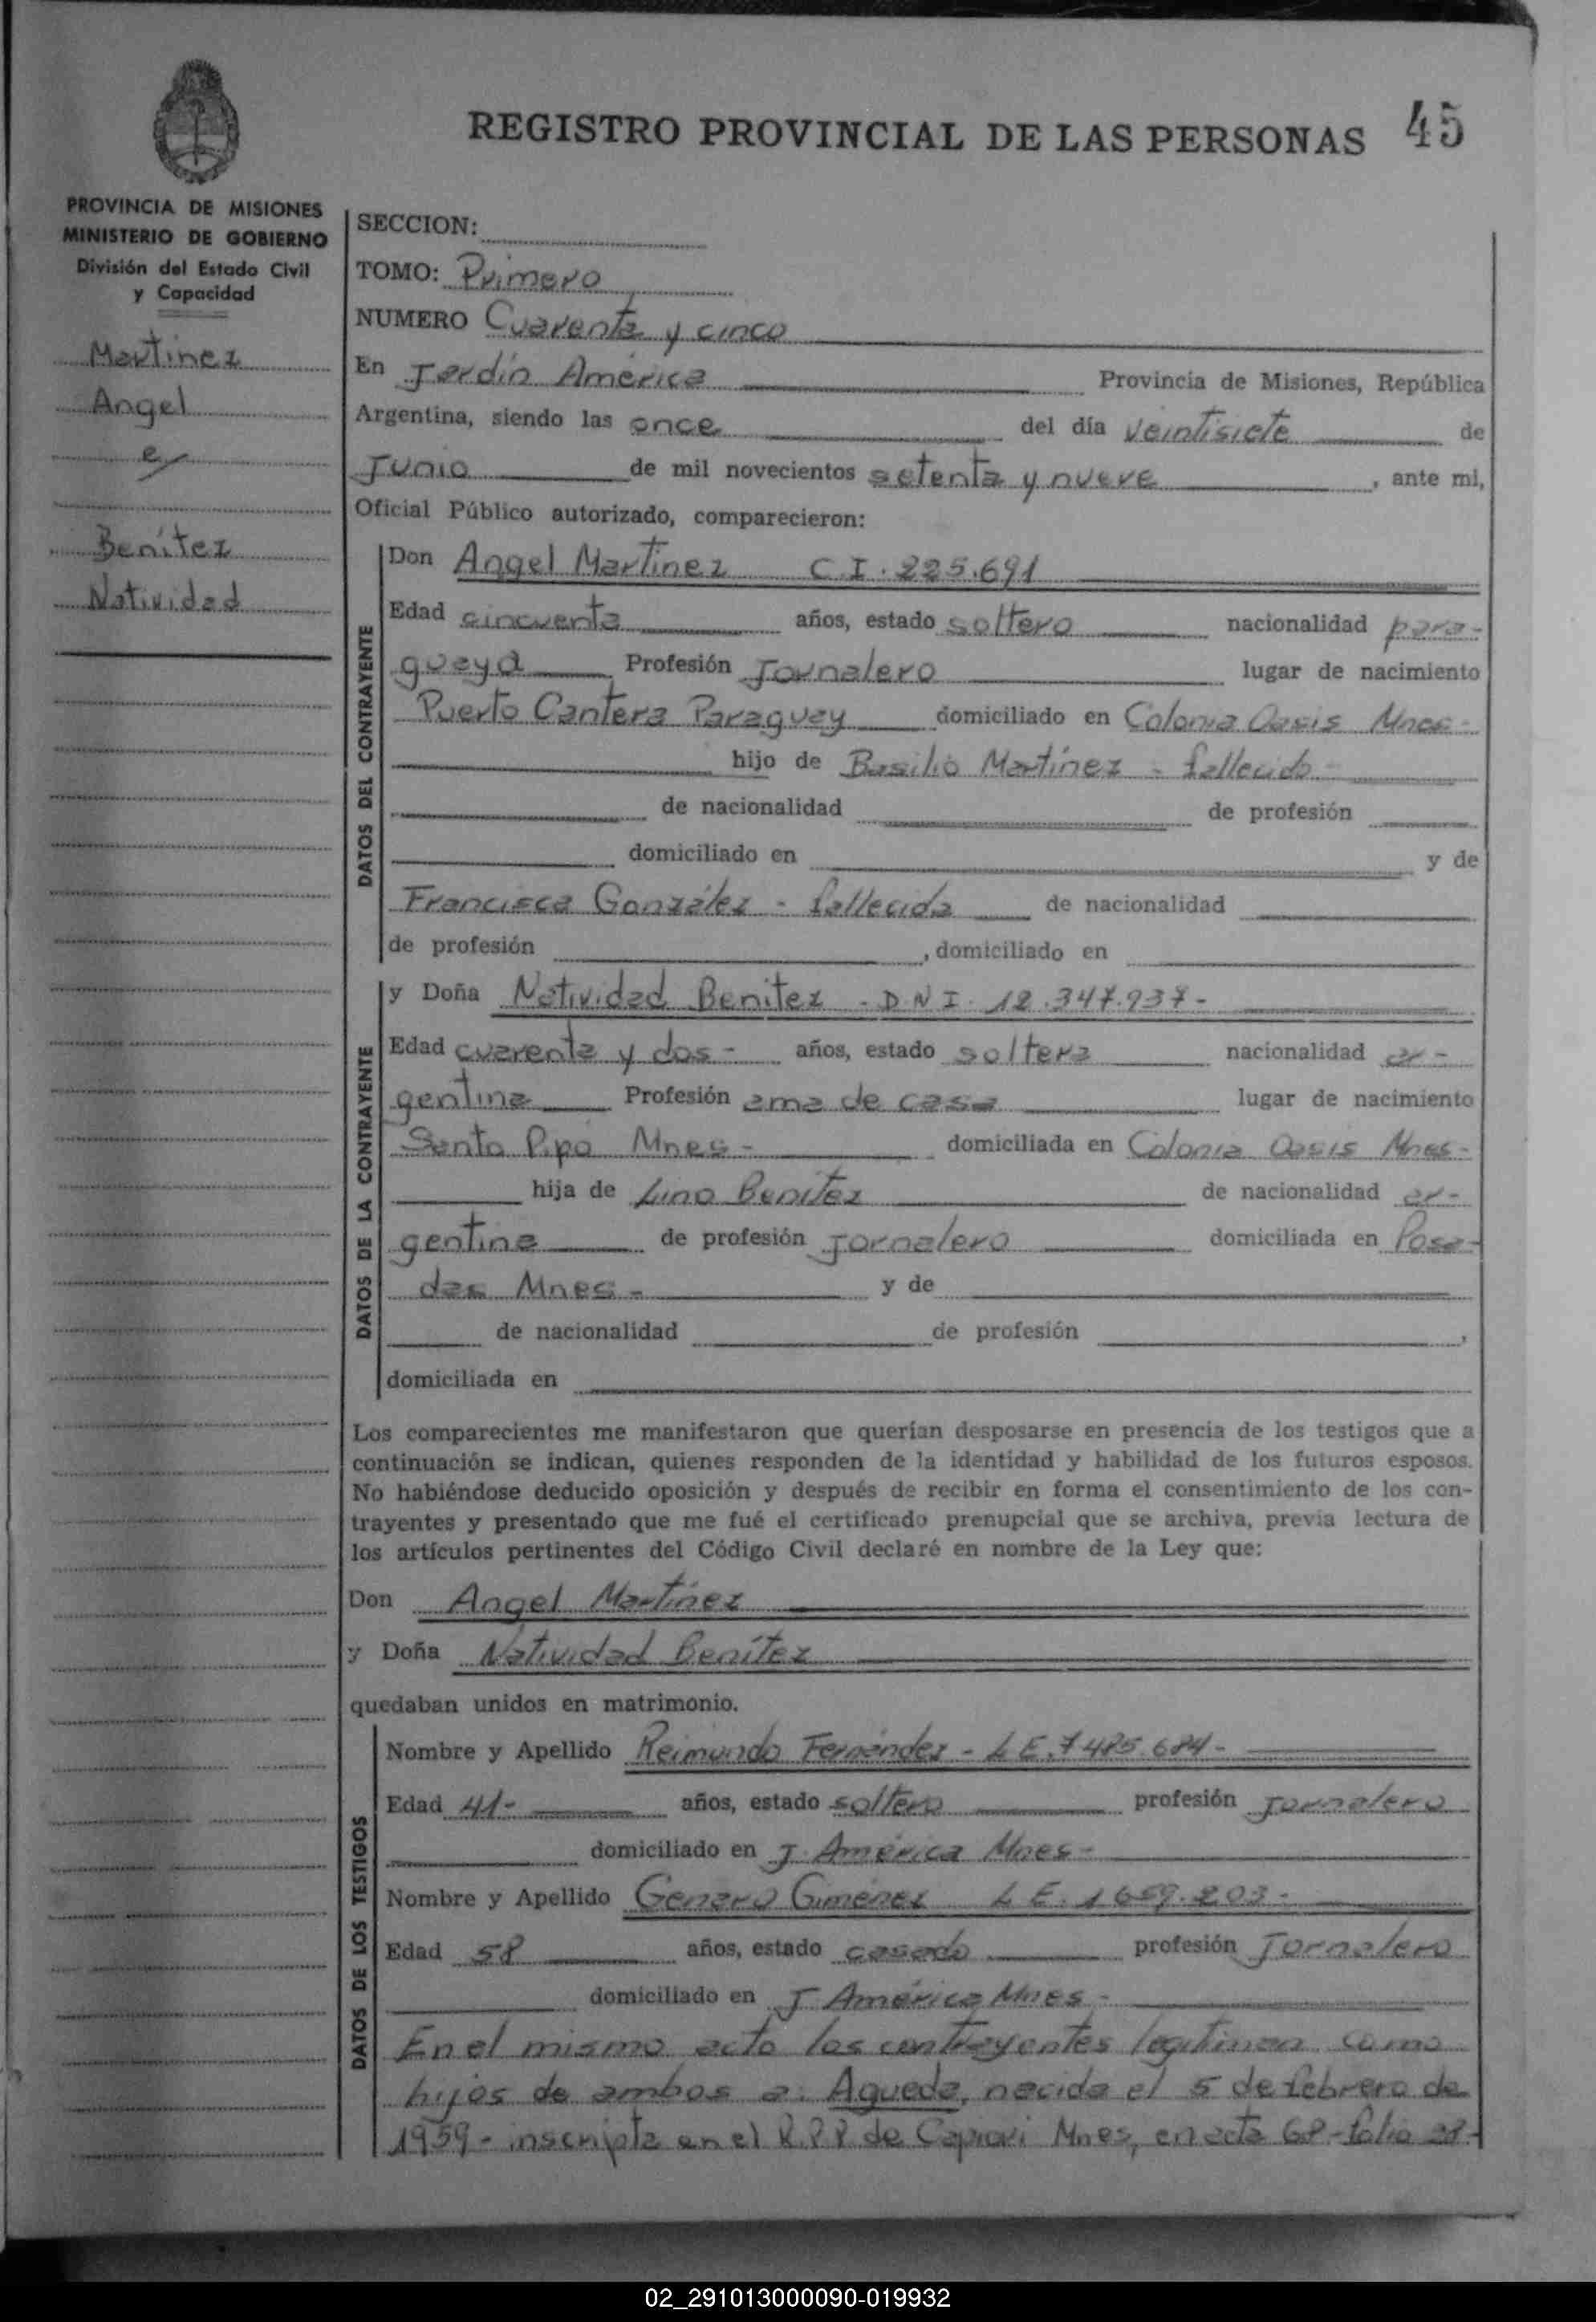 REGISTRO PROVINCIAL DE LAS PERSONAS 45
PROVINCIA DE MISIONES
MINISTERIO DE GOBIERNO
División del Estado Civil
y Capacidad
Martínez
Angel
y
Benítez
Natividad
SECCION:
TOMO: Primero
NUMERO Cuarenta y cinco
En Jardín América Provincia de Misiones, República
Argentina, siendo las once del día veintisiete de
Junio de mil novecientos setenta y nueve, ante mi,
Oficial Público autorizado, comparecieron:
DATOS DEL CONTRAYENTE
Don Angel Martínez C.I. 225.691
Edad cincuenta años, estado soltero nacionalidad para-
guaya Profesión Jornalero lugar de nacimiento
Puerto Cantera Paraguay domiciliado en Colonia Oasis Mnes-
hijo de Basilio Martínez - fallecido-
de nacionalidad de profesión
domiciliado en y de
Francisca González - fallecida de nacionalidad
de profesión , domiciliado en
DATOS DE LA CONTRAYENTE
y Doña Natividad Benítez - D.N.I. 12.347.937-
Edad cuarenta y dos- años, estado soltera nacionalidad ar-
gentina Profesión ama de casa lugar de nacimiento
Santo Pipó Mnes- domiciliada en Colonia Oasis Mnes-
hija de Lino Benítez de nacionalidad ar-
gentina de profesión jornalero domiciliada en Posa-
das Mnes- y de
de nacionalidad de profesión ,
domiciliada en
Los comparecientes me manifestaron que querían desposarse en presencia de los testigos que a
continuación se indican, quienes responden de la identidad y habilidad de los futuros esposos.
No habiéndose deducido oposición y después de recibir en forma el consentimiento de los con-
trayentes y presentado que me fué el certificado prenupcial que se archiva, previa lectura de
los artículos pertinentes del Código Civil declaré en nombre de la Ley que:
Don Angel Martínez
y Doña Natividad Benítez
quedaban unidos en matrimonio.
DATOS DE LOS TESTIGOS
Nombre y Apellido Reimundo Fernández - L.E. 7.485.684-
Edad 41- años, estado soltero profesión jornalero
domiciliado en J. América Mnes-
Nombre y Apellido Genaro Giménez L.E. 1.659.203-
Edad 58 años, estado casado profesión Jornalero
domiciliado en J América Mnes-
En el mismo acto los contrayentes legitiman como
hijos de ambos a: Agueda, nacida el 5 de febrero de
1959- inscripta en el R.P.P. de Capioví Mnes, en acta 68- folio 28-
02_291013000090-019932